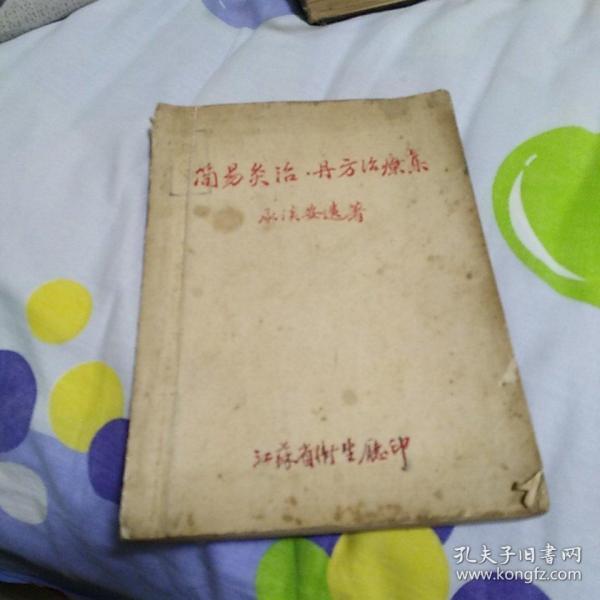 简易灸治·丹方治療集
承淡安遺著
江蘇省衛生廳印
孔夫子旧書网
www.kongfz.com